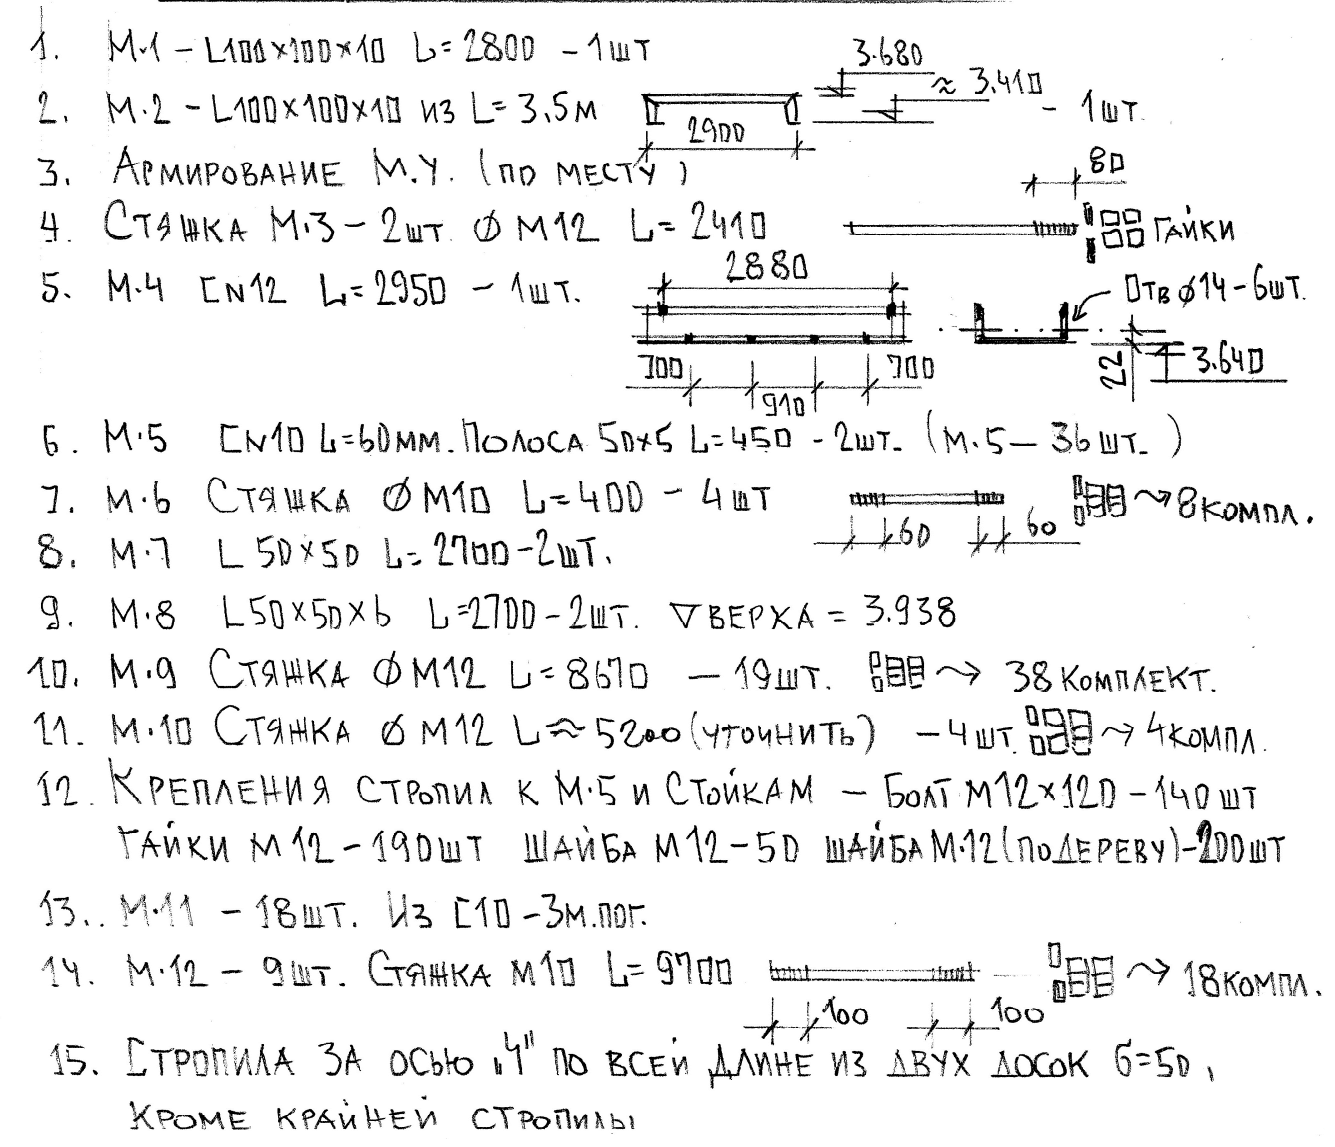 1. М·1 – L100×100×10 L=2800 – 1шт
2. М·2 – L100×100×10 из L=3,5м 2900 3.680 ≈3.410 – 1шт.
3. Армирование М.У. (по месту)
4. Стяжка М·3 – 2шт. ∅ М12 L=2410 80 гайки
5. М·4 [N12 L=2950 – 1шт. 2880 Отв ∅14–6шт.
700 910 700 22 3.640
6. М·5 [N10 L=60мм. Полоса 50×5 L=450 – 2шт. (М·5 – 36шт.)
7. М·6 Стяжка ∅ М10 L=400 – 4шт → 8компл.
60 60
8. М·7 L 50×50 L=2700–2шт.
9. М·8 L50×50×6 L=2700–2шт. ▽верха = 3.938
10. М·9 Стяжка ∅ М12 L=8670 – 19шт. → 38комплект.
11. М·10 Стяжка ∅ М12 L≈5200 (уточнить) – 4шт. → 4компл.
12. Крепления стропил к М·5 и Стойкам – Болт М12×120 – 140шт
гайки М12 – 190шт шайба М12–50 шайба М·12 (по дереву)–200шт
13.. М·11 – 18шт. Из [10 – 3м.пог.
14. М·12 – 9шт. Стяжка М10 L=9700 → 18компл.
100 100
15. Стропила за осью „4" по всей длине из двух досок б=50,
кроме крайней стропилы